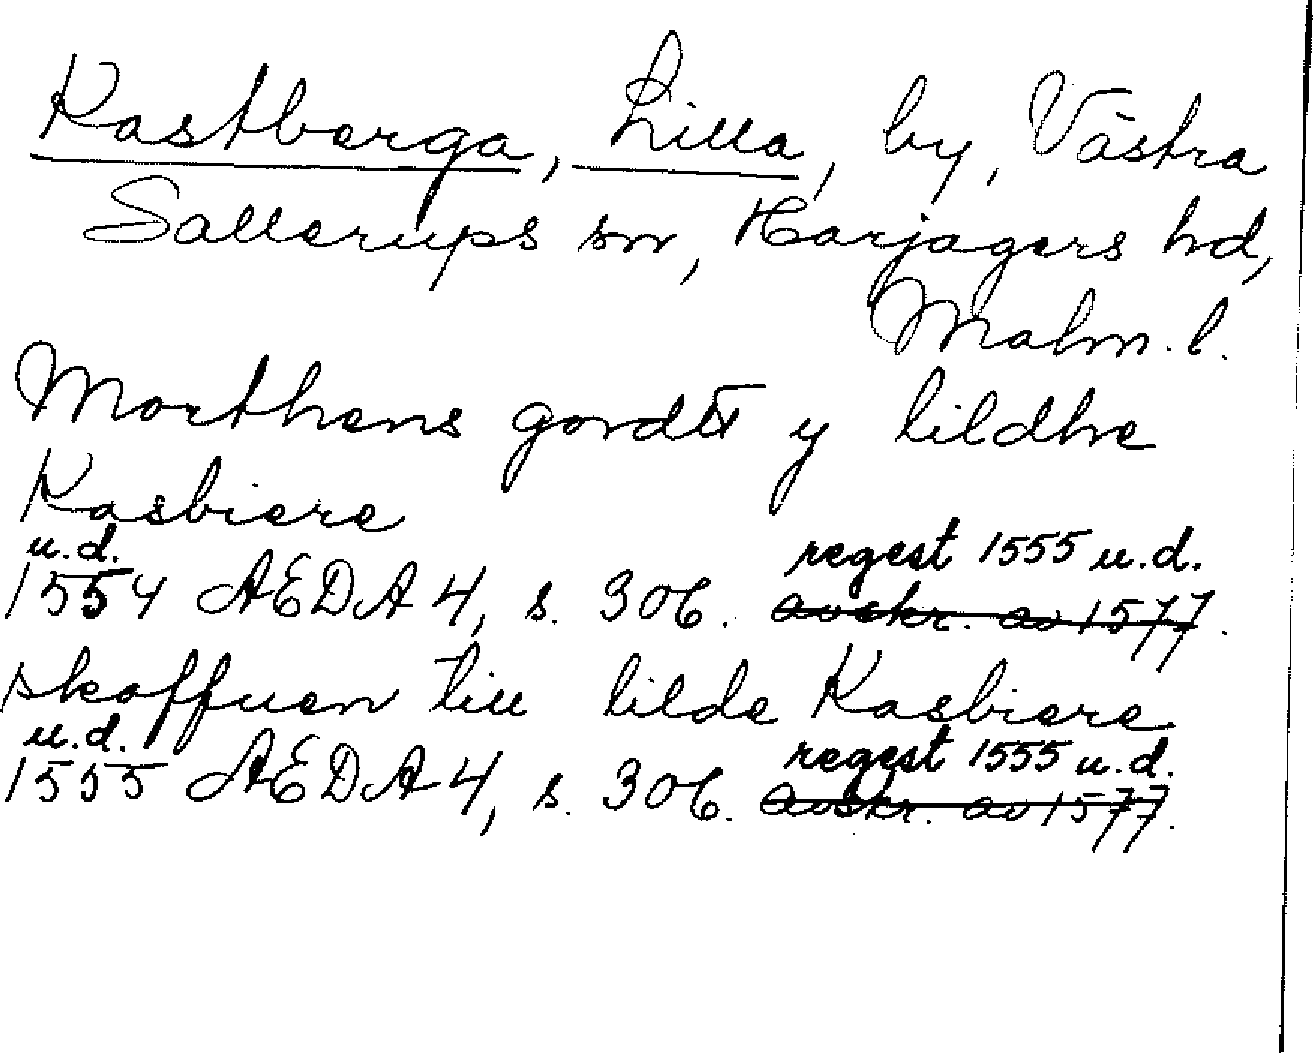 Kastberga, Lilla, by, Västra
Sallerups sn, Harjagers hd,
Malm. l.
Morthens gordtt y lildhe
Kasbiere
u.d. regest 1555 u.d.
1554 AEDA 4, s. 306. avskr. av 1577.
skoffuen till lilde Kasbiere
u.d. regest 1555 u.d.
1555 AEDA 4, s. 306. avskr. av 1577.